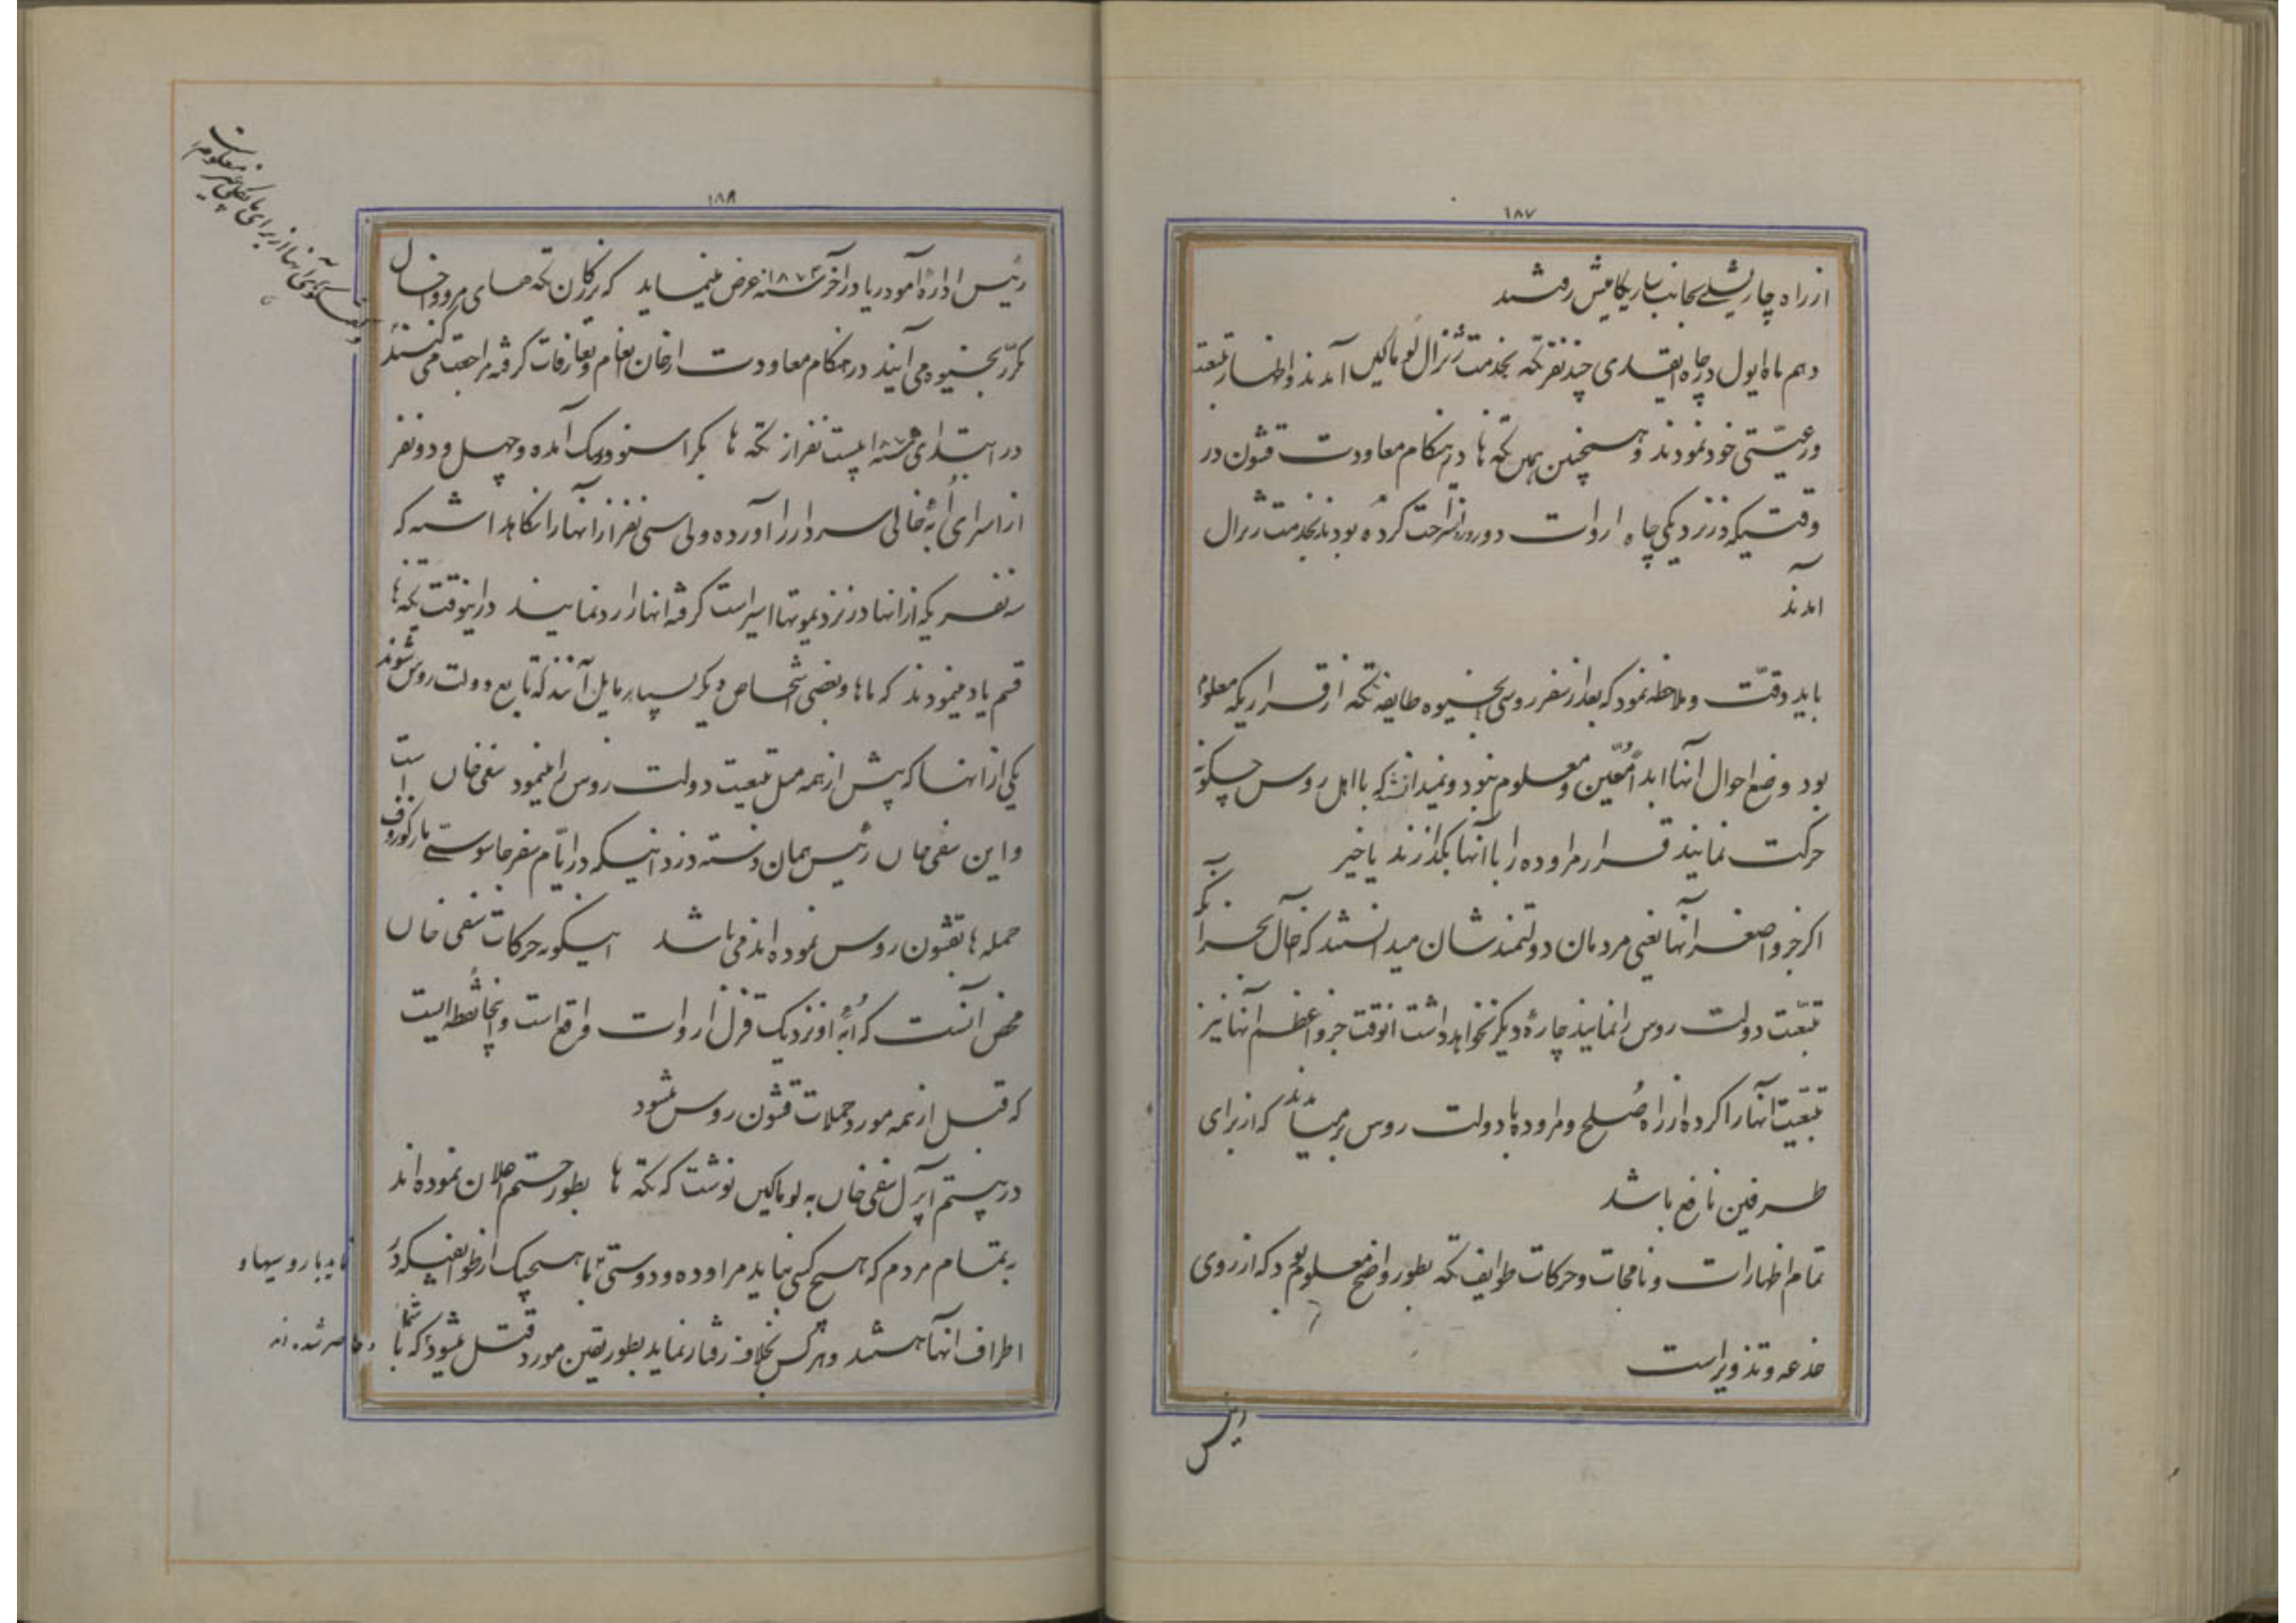 ۱۸۷
از راه چاریشلی بجانب ساریکامیش رفتند
دهم ماه ایول در چاه ایغدی چند نفر تکه بخدمت ژنرال لوماکین آمدند و اظهار تبعیت
و رعیتی خود نمودند و همچنین همین تکه ها در هنگام معاودت قشون در
وقتیکه در نزدیکی چاه اروات دو روز استراحت کرده بودند بخدمت ژنرال
آمدند
باید دقت و ملاحظه نمود که بعد از سفر روسی بخیوه طایفه تکه از قراریکه معلوم
بود وضع احوال آنها ابداً معین و معلوم نبود و نمیدانستند که با اهل روس چگونه
حرکت نمایند قرار مراوده را با آنها بگذارند یا خیر
اگر جزو اصغر آنها یعنی مردمان دولتمندشان میدانستند که حال بجز آنکه
تبعیت دولت روس را نمایند چارهٔ دیگر نخواهد داشت آنوقت جزو اعظم آنها نیز
تبعیت آنها را کرده از راه صلح و مراوده با دولت روس برمیآمدند که از برای
طرفین نافع باشد
تمام اظهارات و نامجات و حرکات طوایف تکه بطور واضح معلوم بود که از روی
خدعه و تذویر است
۱۸۸
رئیس ادارهٔ آمودریا در آخر سنه ۱۸۷۴ عرض مینماید که بزرگان تکه های مرو و اخال
مکرر بخیوه می آیند در هنگام معاودت از خان انعام و تعارفات گرفته مراجعت می کنند
در ابتدای سنه بیست نفر از تکه ها بکراسنوودسک آمده و چهل و دو نفر
از اسرای ابهٔ خالی سردار را آورده ولی سی نفر از آنها را نگاهداشته که
سه نفریکه از آنها در نزد یموتها اسیر است گرفته آنها را رد نمایند در اینوقت تکه ها
قسم یاد مینمودند که ماها و بعضی اشخاص دیگر بسیار مایل آنند که تابع دولت روس شوند
یکی از آنها که پیش از همه میل تبعیت دولت روس را مینمود سفی خان است
و این سفی خان رئیس همان دسته دزدانیست که در ایام سفر جاسوسی مارکوزوف
حمله ها بقشون روس نموده اند می باشد اینگونه حرکات سفی خان
محض آنست که ابهٔ او نزدیک قزل اروات واقع است و اینجا نقطه ایست
که قبل از همه مورد حملات قشون روس میشود
در بیستم آپرل سفی خان به لوماکین نوشت که تکه ها بطور حتم اعلان نموده اند
به تمام مردم که هیچ کسی نباید مراوده و دوستی با هیچیک از طوایفیکه در
اطراف آنها هستند و هرکس بخلاف رفتار نماید بطور یقین مورد قتل میشود که با شما